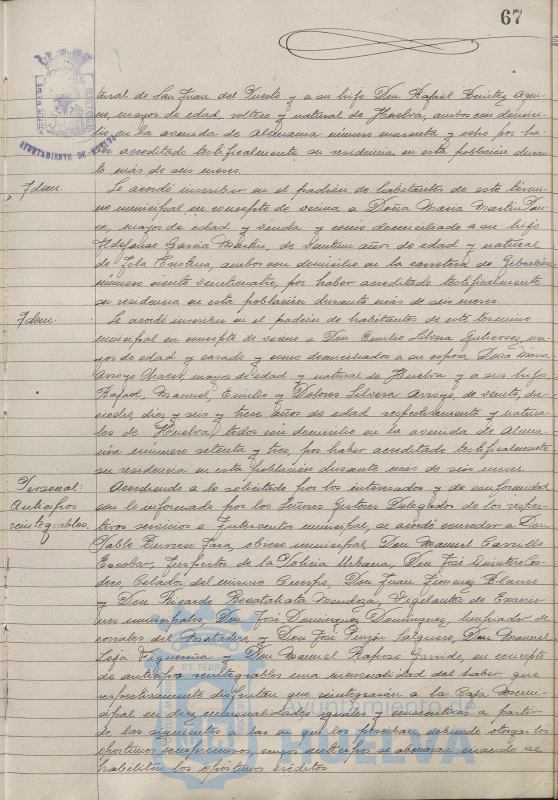 67
AYUNTAMIENTO DE HUELVA
tural de San Juan del Puerto y a su hijo Don Rafael Benitez Aqui-
no, mayor de edad, soltero y natural de Huelva, ambos con domici-
lio en la avenida de Alemania número cuarenta y ocho por ha-
ber acreditado testificalmente su residencia en esta población duran-
te más de seis meses.
Idem.
Se acordó inscribir en el padrón de habitantes de este térmi-
no municipal en concepto de vecina a Doña Maria Martin
mayor de edad y viuda y como domiciliado a su hijo
Ildefonso Garcia Martin, de veintiun años de edad y natural
de Isla Cristina, ambos con domicilio en la carretera de Gibraleón
número ciento veinticuatro, por haber acreditado testificalmente
su residencia en esta población durante más de seis meses.
Idem.
Se acordó inscribir en el padrón de habitantes de este término
municipal en concepto de vecino a Don Emilio Silvera Gutierrez, ma-
yor de edad y casado y como domiciliados a su esposa Doña Maria
Arroyo mayor de edad y natural de Huelva y a sus hijos
Rafael, Manuel, Emilio y Dolores Silvera Arroyo, de veinte, die-
cinueve, diez y seis y trece años de edad respectivamente y natura-
les de Huelva, todos con domicilio en la avenida de Alema-
nia número setenta y tres, por haber acreditado testificalmente
su residencia en esta población durante más de seis meses.
Personal:
Anticipos
reintegrables.
Accediendo a lo solicitado por los interesados y de conformidad
con lo informado por los Señores Gestores Delegados de los respec-
tivos servicios e Intervención municipal, se acordó conceder a Don
Pablo Jara, obrero municipal Don Manuel Carrillo
Escobar, Inspector de la Policia Urbana, Don José Quintero
Celador del mismo Cuerpo, Don Juan Jimenez Blanco
y Don Ricardo Mendoza, Vigilantes de
municipales, Don José Dominguez Dominguez, limpiador de
corrales del Matadero, y Don José Pinzón Salguero, Don Manuel
Figueroa y Don Manuel Raposo Garrido, en concepto
de anticipos reintegrables una mensualidad del haber que
respectivamente disfrutan que reintegrarán a la Caja Muni-
cipal en diez mensualidades iguales y consecutivas a partir
de las siguientes a las en que los perciban, debiendo otorgar los
oportunos compromisos, cuyos anticipos se abonarán cuando se
habiliten los oportunos créditos.
ET TERRÆ
Ayuntamiento de
HUELVA